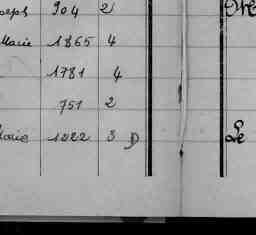 oseph 904 2
Marie 1865 4
1781 4
751 2
Marie 1022 3 D Le